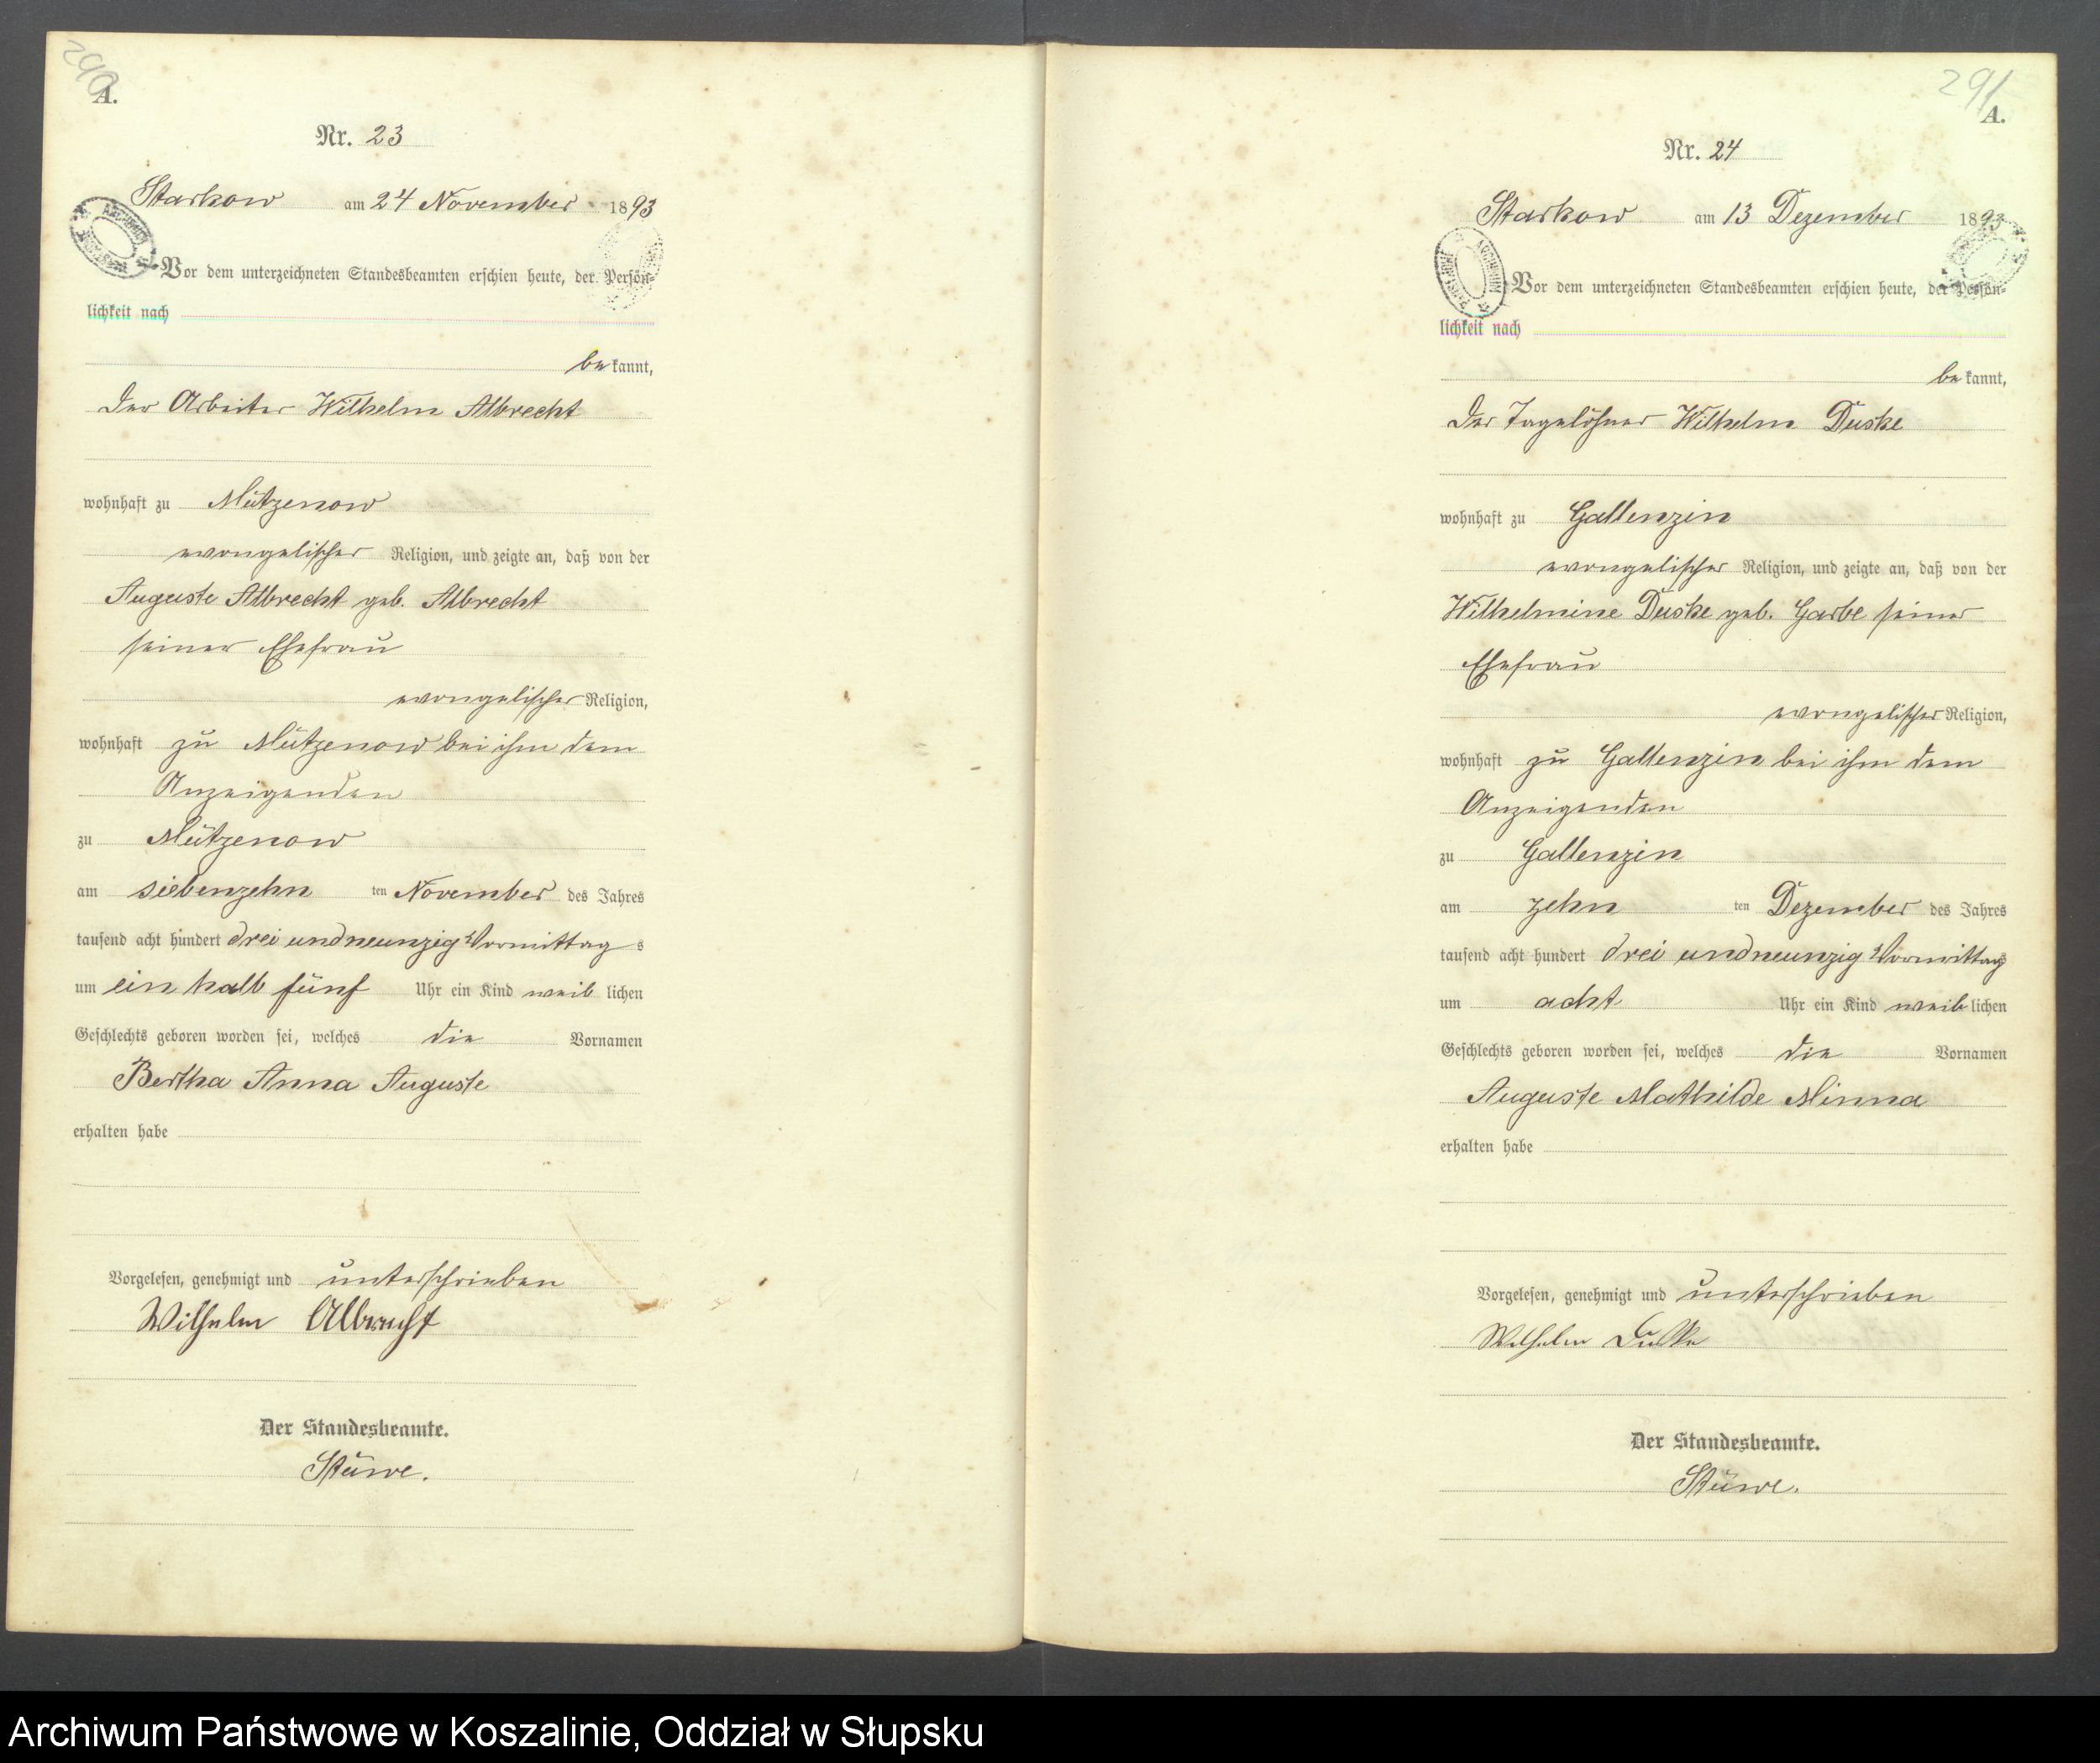 290
A.
Nr. 23
Starkow am 24 November 1893
Vor dem unterzeichneten Standesbeamten erschien heute, der Persön-
lichkeit nach
bekannt,
der Arbeiter Wilhelm Albrecht
wohnhaft zu Mützenow
evangelischer Religion, und zeigte an, daß von der
Auguste Albrecht geb. Albrecht
seiner Ehefrau
evangelischer Religion,
wohnhaft zu Mützenow bei ihm dem
Anzeigenden
zu Mützenow
am siebenzehn ten November des Jahres
tausend acht hundert drei und neunzig Vormittags
um ein halb fünf Uhr ein Kind weiblichen
Geschlechts geboren worden sei, welches die Vornamen
Bertha Anna Auguste
erhalten habe
Vorgelesen, genehmigt und unterschrieben
Wilhelm Albrecht
Der Standesbeamte.
Stüwe.
291
A.
Nr. 24
Starkow am 13 Dezember 1893
Vor dem unterzeichneten Standesbeamten erschien heute, der Persön-
lichkeit nach
bekannt,
der Tagelöhner Wilhelm Duske
wohnhaft zu Gallenzin
evangelischer Religion, und zeigte an, daß von der
Wilhelmine Duske geb. Garbe seiner
Ehefrau
evangelischer Religion,
wohnhaft zu Gallenzin bei ihm dem
Anzeigenden
zu Gallenzin
am zehn ten Dezember des Jahres
tausend acht hundert drei und neunzig Vormittags
um acht Uhr ein Kind weiblichen
Geschlechts geboren worden sei, welches die Vornamen
Auguste Mathilde Minna
erhalten habe
Vorgelesen, genehmigt und unterschrieben
Wilhelm Duske
Der Standesbeamte.
Stüwe.
Archiwum Państwowe w Koszalinie, Oddział w Słupsku